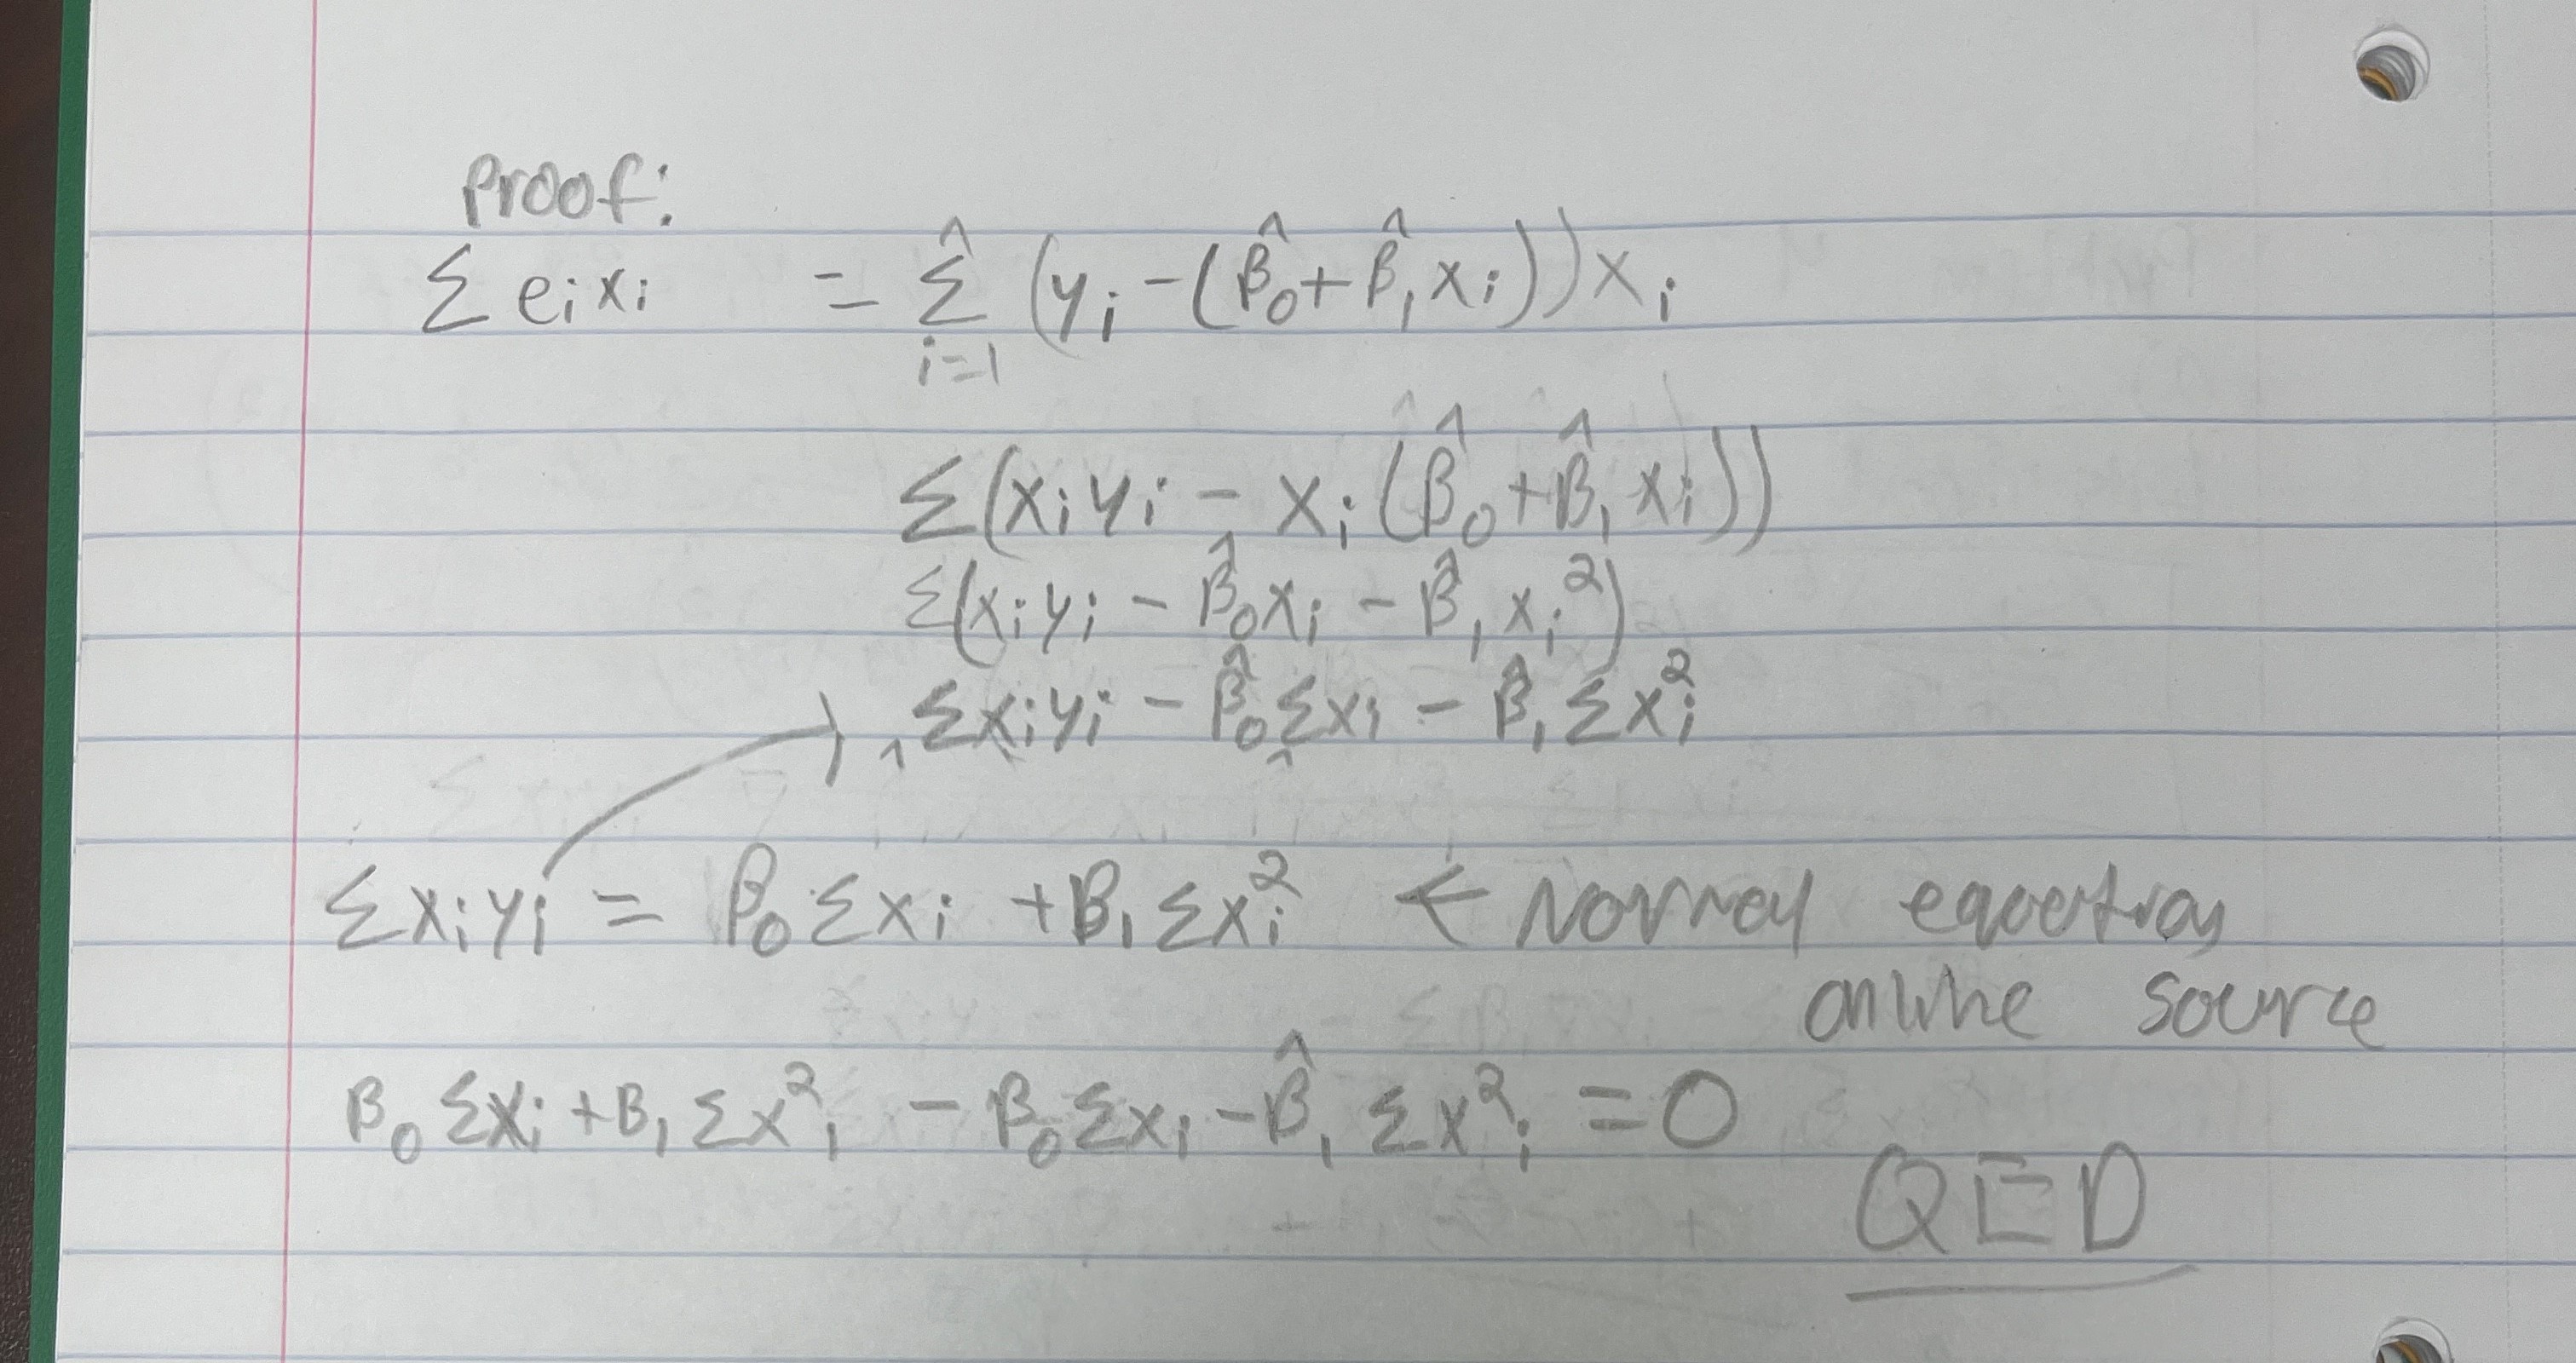 Proof:
Σ eᵢxᵢ = Σ̂ᵢ₌₁ (yᵢ - (β̂₀ + β̂₁xᵢ))xᵢ
Σ(xᵢyᵢ - xᵢ(β̂₀ + β̂₁xᵢ))
Σ(xᵢyᵢ - β̂₀xᵢ - β̂₁xᵢ²)
Σxᵢyᵢ - β̂₀Σxᵢ - β̂₁Σxᵢ²
Σxᵢyᵢ = β₀Σxᵢ + β₁Σxᵢ² ← Normal equation
online source
β₀Σxᵢ + β₁Σx²ᵢ - β₀Σxᵢ - β̂₁Σx²ᵢ = 0
QED